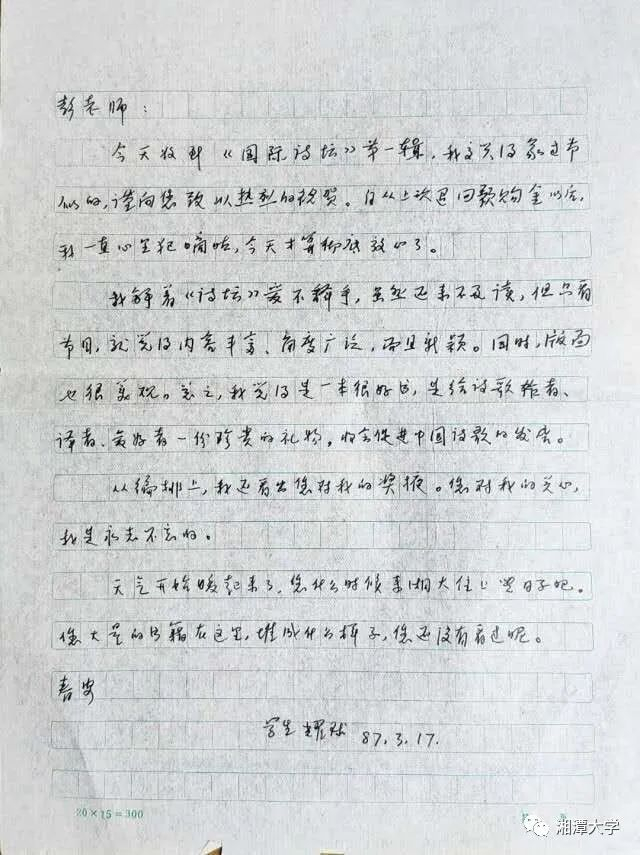 彭老师：
今天收到《国际诗坛》第一辑，我高兴得象过节
似的，谨向您致以热烈的祝贺。自从上次退回款购金以后，
我一直心里犯嘀咕，今天才算彻底放心了。
我解着《诗坛》爱不释手，虽然还来不及读，但只看
节目，就觉得内容丰富、角度广泛，而且新颖。同时，版面
也很美观。总之，我觉得是一本很好书，是给诗歌作者、
译者、爱好者一份珍贵的礼物，将会促进中国诗歌的发展。
从编排上，我还看出您对我的奖掖。您对我的关心，
我是永志不忘的。
天气开始暖起来了，您什么时候来湘大住上些日子吧。
您大量的书籍在这里，堆成什么样子，您还没有看过呢。
春安
学生 耀球 87.3.17.
20×15=300
湘潭大学